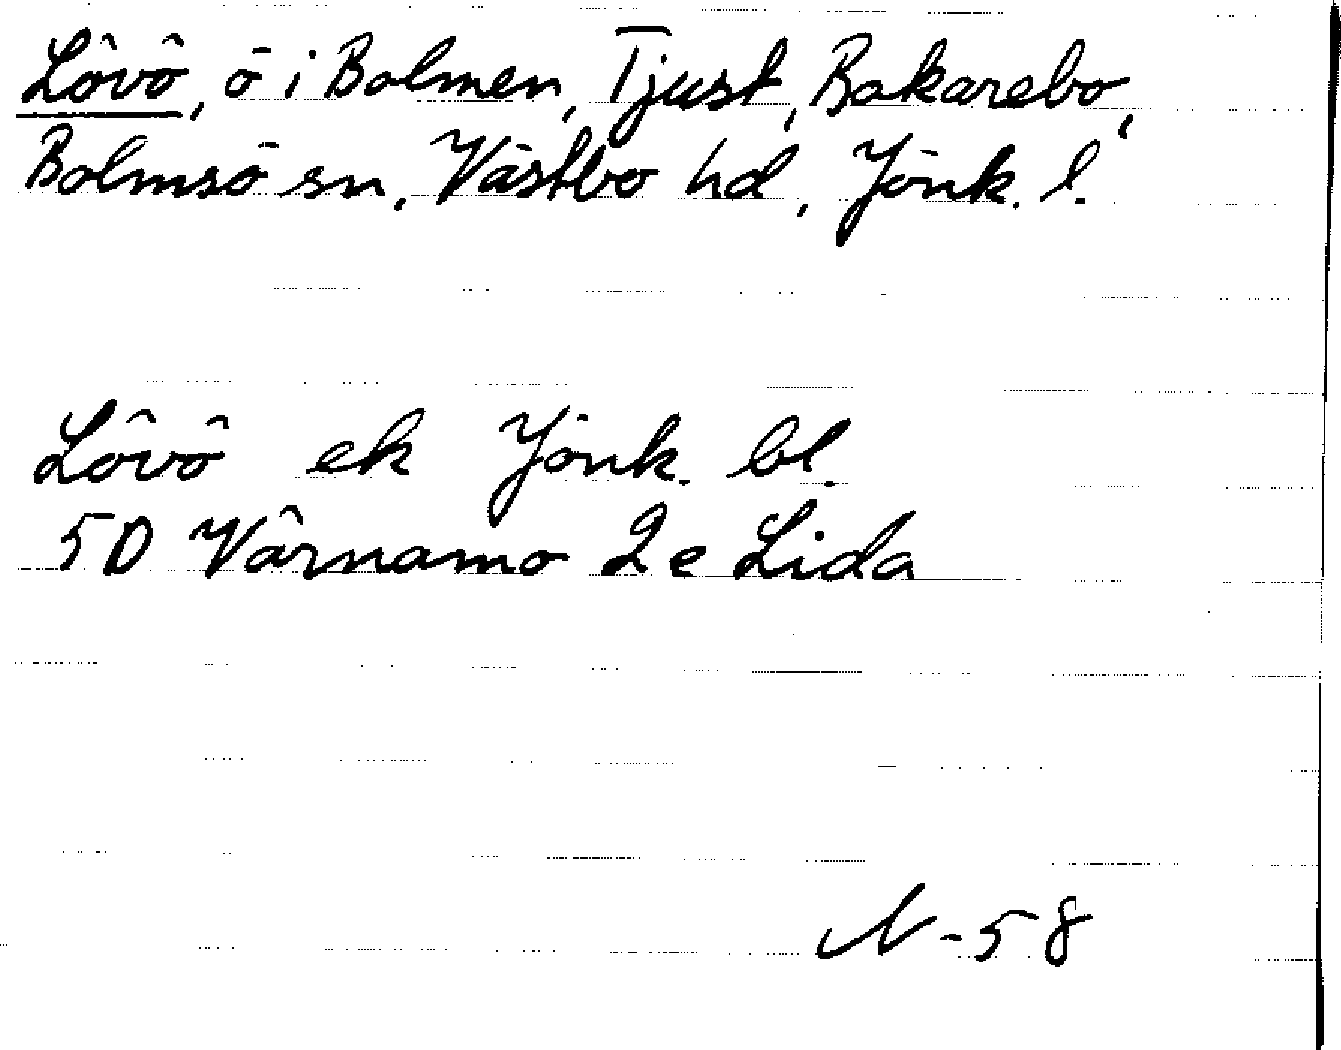 Lövö, ö i Bolmen, Tjust, Bakarebo,
Bolmsö sn, Västbo hd, Jönk. l.
Lövö ek Jönk. bl.
5D Värnamo 2e Lida
N-58